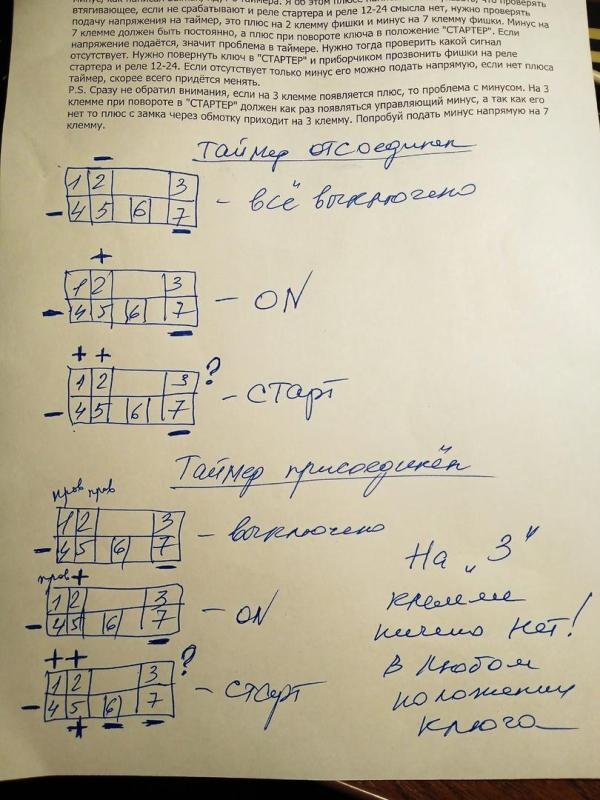 втягивающее, если не срабатывают и реле стартера и реле 12-24 смысла нет, нужно проверять
подачу напряжения на таймер, это плюс на 2 клемму фишки и минус на 7 клемму фишки. Минус на
7 клемме должен быть постоянно, а плюс при повороте ключа в положение "СТАРТЕР". Если
напряжение подаётся, значит проблема в таймере. Нужно тогда проверить какой сигнал
отсутствует. Нужно повернуть ключ в "СТАРТЕР" и приборчиком прозвонить фишки на реле
стартера и реле 12-24. Если отсутствует только минус его можно подать напрямую, если нет плюса
таймер, скорее всего придётся менять.
P.S. Сразу не обратил внимания, если на 3 клемме появляется плюс, то проблема с минусом. На 3
клемме при повороте в "СТАРТЕР" должен как раз появляться управляющий минус, а так как его
нет то плюс с замка через обмотку приходит на 3 клемму. Попробуй подать минус напрямую на 7
клемму.
Таймер отсоединен
−
1 2 3
− 4 5 6 7 − всё выключено
−
+
1 2 3
− 4 5 6 7 − ON
−
+ +
1 2 3 ?
− 4 5 6 7 − СТАРТ
−
Таймер присоединён
пров пров
1 2 3
− 4 5 6 7 − выключено
−
пров +
1 2 3
− 4 5 6 7 − ON
−
+ +
1 2 3 ?
− 4 5 6 7 − СТАРТ
+ − −
На „3"
клемме
ничего нет!
в любом
положении
ключа